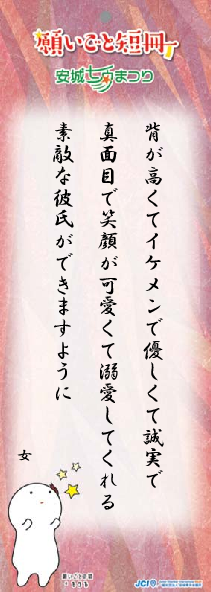 願いごと短冊
安城七夕まつり
背が高くてイケメンで優しくて誠実で
真面目で笑顔が可愛くて溺愛してくれる
素敵な彼氏ができますように
女
願いごと短冊
JCI